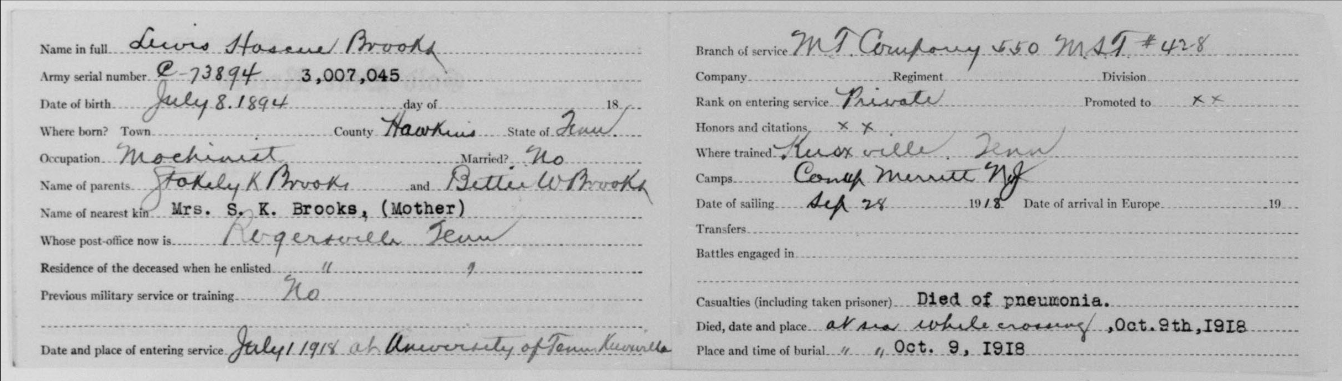 Name in full Lewis Hascue Brooks
Army serial number C-73894 3,007,045
Date of birth July 8. 1894 day of 18
Where born? Town County Hawkins State of Tenn.
Occupation Machinist Married? No
Name of parents Stokely K Brooks and Bettie W Brooks
Name of nearest kin Mrs. S. K. Brooks, (Mother)
Whose post-office now is Rogersville Tenn
Residence of the deceased when he enlisted " "
Previous military service or training No
Date and place of entering service July 1 1918 at University of Tenn Knoxville
Branch of service M.T. Company 550 M.S.T. #428
Company Regiment Division
Rank on entering service Private Promoted to x x
Honors and citations x x
Where trained Knoxville, Tenn
Camps Camp Merritt NJ
Date of sailing Sep 28 1918 Date of arrival in Europe 19
Transfers
Battles engaged in
Casualties (including taken prisoner) Died of pneumonia.
Died, date and place at sea while crossing ,Oct.9th,1918
Place and time of burial " " Oct. 9, 1918